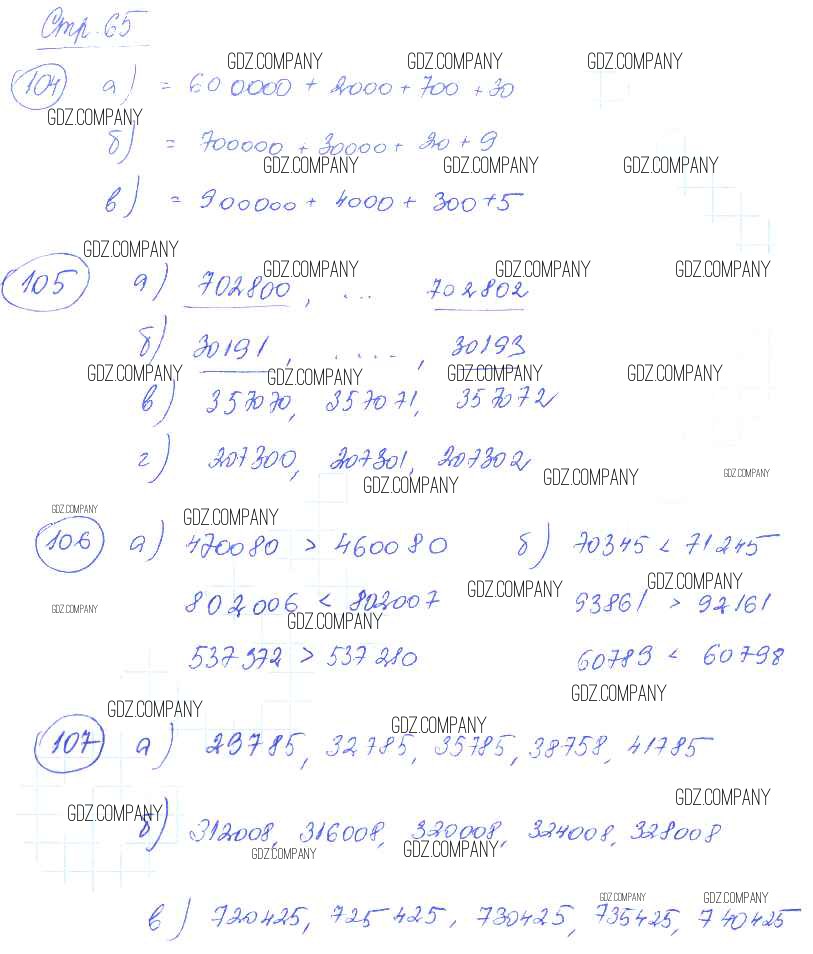 Стр. 65
GDZ.COMPANY GDZ.COMPANY GDZ.COMPANY
104 а) = 600000 + 2000 + 700 + 30
GDZ.COMPANY
б) = 700000 + 30000 + 20 + 9
GDZ.COMPANY GDZ.COMPANY GDZ.COMPANY
в) = 900000 + 4000 + 300 + 5
GDZ.COMPANY
GDZ.COMPANY GDZ.COMPANY GDZ.COMPANY
105 а) 702800, ... 702802
б) 30191, ....., 30193
GDZ.COMPANY GDZ.COMPANY GDZ.COMPANY GDZ.COMPANY
в) 357070, 357071, 357072
г) 207300, 207301, 207302
GDZ.COMPANY GDZ.COMPANY GDZ.COMPANY
GDZ.COMPANY GDZ.COMPANY
106 а) 470080 > 460080 б) 70345 < 71245
GDZ.COMPANY GDZ.COMPANY
802006 < 802007 93861 > 92161
GDZ.COMPANY GDZ.COMPANY
537372 > 537280 60789 < 60798
GDZ.COMPANY
GDZ.COMPANY GDZ.COMPANY
107 а) 29785, 32785, 35785, 38758, 41785
GDZ.COMPANY GDZ.COMPANY
б) 312008, 316008, 320008, 324008, 328008
GDZ.COMPANY GDZ.COMPANY
GDZ.COMPANY GDZ.COMPANY
в) 720425, 725425, 730425, 735425, 740425